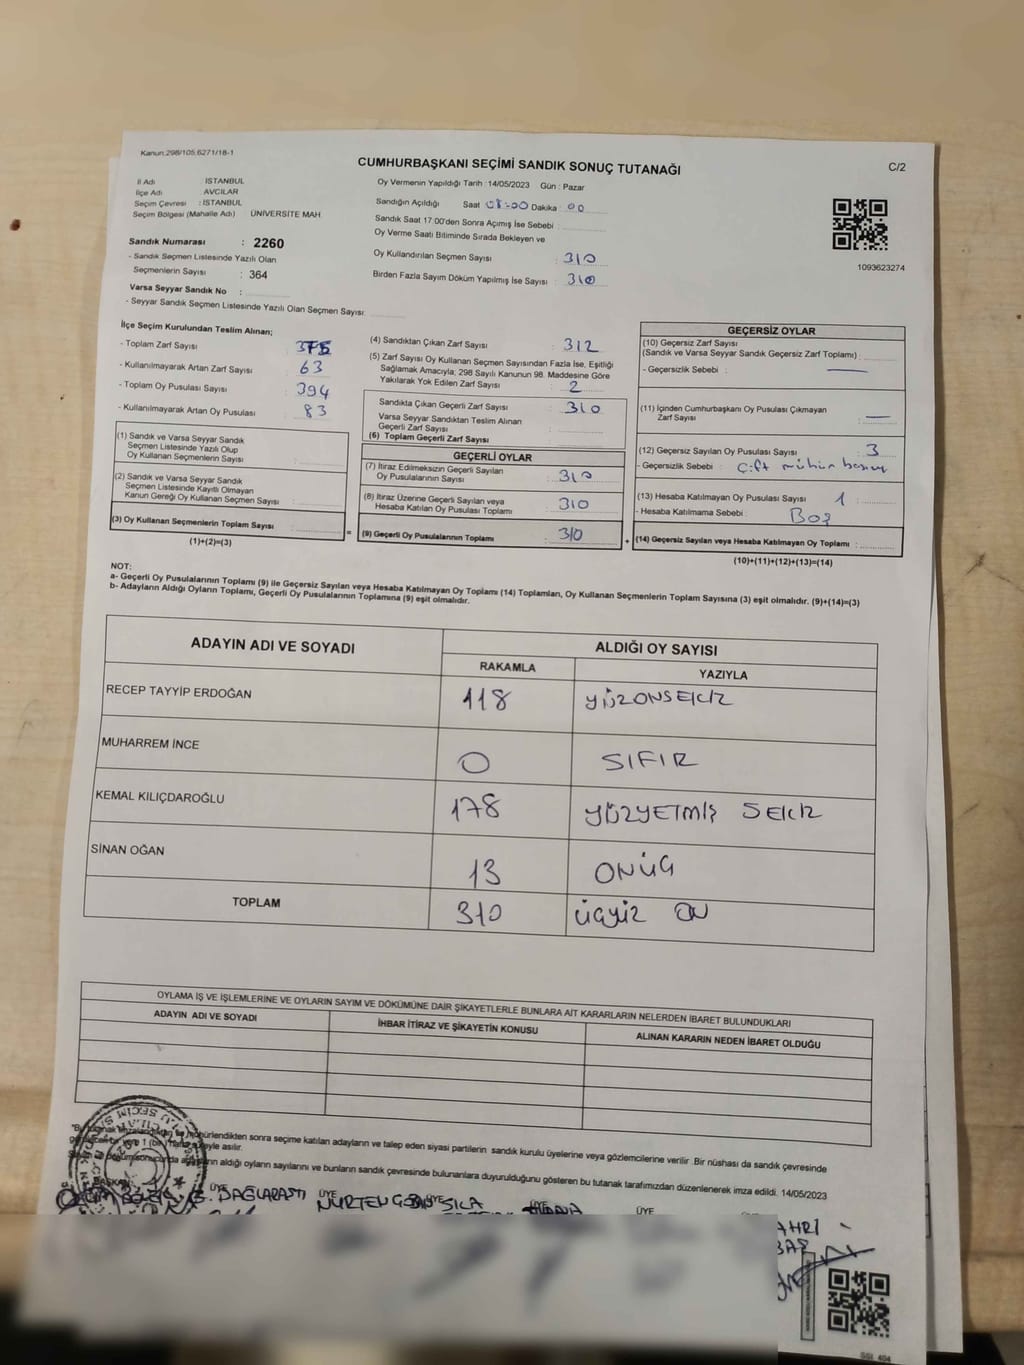 Kanun:298/105,6271/18-1
CUMHURBAŞKANI SEÇİMİ SANDIK SONUÇ TUTANAĞI
C/2
İl Adı : İSTANBUL
İlçe Adı : AVCILAR
Seçim Çevresi : İSTANBUL
Seçim Bölgesi (Mahalle Adı) ÜNİVERSİTE MAH.
Sandık Numarası : 2260
- Sandık Seçmen Listesinde Yazılı Olan
Seçmenlerin Sayısı : 364
Varsa Seyyar Sandık No :
- Seyyar Sandık Seçmen Listesinde Yazılı Olan Seçmen Sayısı:
Oy Vermenin Yapıldığı Tarih :14/05/2023 Gün : Pazar
Sandığın Açıldığı Saat 08:00 Dakika : 00
Sandık Saat 17.00'den Sonra Açılmış İse Sebebi :
Oy Verme Saati Bitiminde Sırada Bekleyen ve
Oy Kullandırılan Seçmen Sayısı : 310
Birden Fazla Sayım Döküm Yapılmış İse Sayısı : 310
1093623274
İlçe Seçim Kurulundan Teslim Alınan;
- Toplam Zarf Sayısı : 375
- Kullanılmayarak Artan Zarf Sayısı : 63
- Toplam Oy Pusulası Sayısı : 394
- Kullanılmayarak Artan Oy Pusulası : 83
(1) Sandık ve Varsa Seyyar Sandık
Seçmen Listesinde Yazılı Olup
Oy Kullanan Seçmenlerin Sayısı :
(2) Sandık ve Varsa Seyyar Sandık
Seçmen Listesinde Kayıtlı Olmayan
Kanun Gereği Oy Kullanan Seçmen Sayısı :
(3) Oy Kullanan Seçmenlerin Toplam Sayısı : =
(1)+(2)=(3)
(4) Sandıktan Çıkan Zarf Sayısı : 312
(5) Zarf Sayısı Oy Kullanan Seçmen Sayısından Fazla İse, Eşitliği
Sağlamak Amacıyla; 298 Sayılı Kanunun 98. Maddesine Göre
Yakılarak Yok Edilen Zarf Sayısı : 2
Sandıkta Çıkan Geçerli Zarf Sayısı : 310
Varsa Seyyar Sandıktan Teslim Alınan
Geçerli Zarf Sayısı :
(6) Toplam Geçerli Zarf Sayısı :
GEÇERLİ OYLAR
(7) İtiraz Edilmeksizin Geçerli Sayılan
Oy Pusulalarının Sayısı : 310
(8) İtiraz Üzerine Geçerli Sayılan veya
Hesaba Katılan Oy Pusulası Toplamı : 310
(9) Geçerli Oy Pusulalarının Toplamı : 310 +
GEÇERSİZ OYLAR
(10) Geçersiz Zarf Sayısı
(Sandık ve Varsa Seyyar Sandık Geçersiz Zarf Toplamı) :
- Geçersizlik Sebebi : —
(11) İçinden Cumhurbaşkanı Oy Pusulası Çıkmayan
Zarf Sayısı : —
(12) Geçersiz Sayılan Oy Pusulası Sayısı : 3
- Geçersizlik Sebebi : Çift mühür
(13) Hesaba Katılmayan Oy Pusulası Sayısı : 1
- Hesaba Katılmama Sebebi : Boş
(14) Geçersiz Sayılan veya Hesaba Katılmayan Oy Toplamı :
(10)+(11)+(12)+(13)=(14)
NOT:
a- Geçerli Oy Pusulalarının Toplamı (9) ile Geçersiz Sayılan veya Hesaba Katılmayan Oy Toplamı (14) Toplamları, Oy Kullanan Seçmenlerin Toplam Sayısına (3) eşit olmalıdır. (9)+(14)=(3)
b- Adayların Aldığı Oyların Toplamı, Geçerli Oy Pusulalarının Toplamına (9) eşit olmalıdır.
ADAYIN ADI VE SOYADI ALDIĞI OY SAYISI
RAKAMLA YAZIYLA
RECEP TAYYİP ERDOĞAN 118 YÜZONSEKİZ
MUHARREM İNCE 0 SIFIR
KEMAL KILIÇDAROĞLU 178 YÜZYETMİŞ SEKİZ
SİNAN OĞAN 13 ONÜÇ
TOPLAM 310 ÜÇYÜZ ON
OYLAMA İŞ VE İŞLEMLERİNE VE OYLARIN SAYIM VE DÖKÜMÜNE DAİR ŞİKAYETLERLE BUNLARA AİT KARARLARIN NELERDEN İBARET BULUNDUKLARI
ADAYIN ADI VE SOYADI İHBAR İTİRAZ VE ŞİKAYETİN KONUSU ALINAN KARARIN NEDEN İBARET OLDUĞU
mühürlendikten sonra seçime katılan adayların ve talep eden siyasi partilerin sandık kurulu üyelerine veya gözlemcilerine verilir .Bir nüshası da sandık çevresinde
aldığı oyların sayılarını ve bunların sandık çevresinde bulunanlara duyurulduğunu gösteren bu tutanak tarafımızdan düzenlenerek imza edildi. 14/05/2023
BAŞKAN ÜYE ÜYE ÜYE ÜYE ÜYE
E. BAĞLARASTI NURTEN SILA